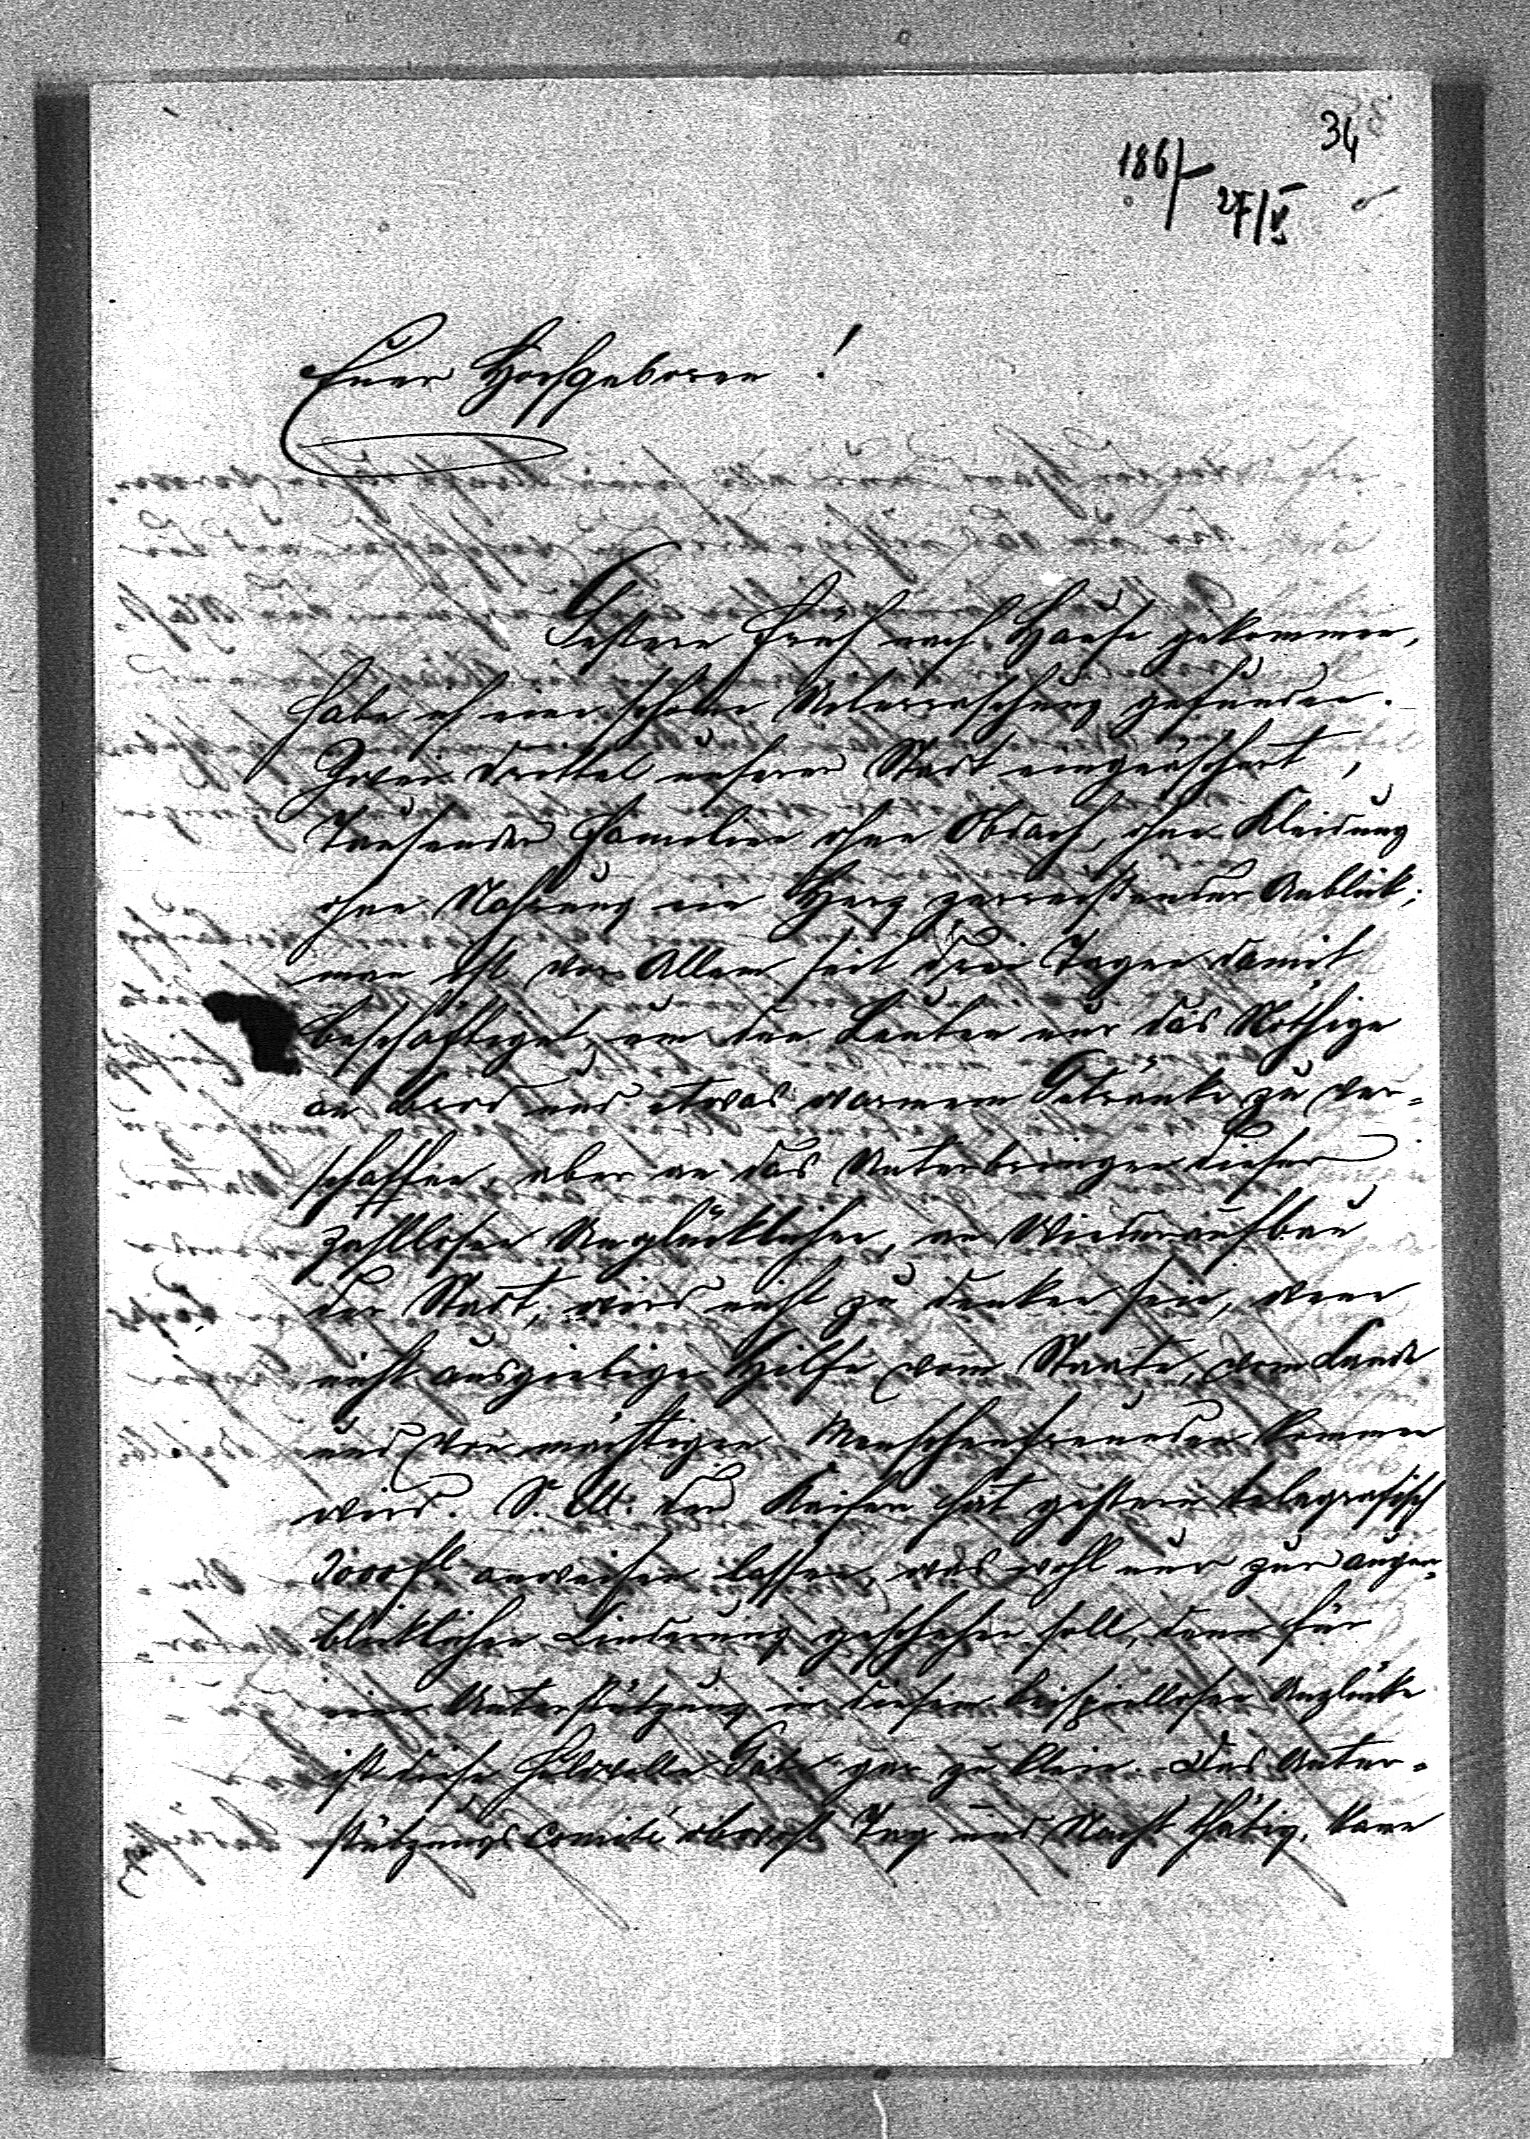 34
186/
27/V
Euer Hochgeboren!
Gestern Früh nach Hause gekommen,
habe ich eine schöne Ueberraschung gefunden.
Zwei Drittel unserer Stadt eingeäschert,
Tausende Familien ohne Obdach, ohne Kleidung
ohne Nahrung ein Herz zerreißender Anblick;
man ist vor Allem seit drei Tagen damit
beschäftiget, um den Leuten nur das Nöthige
an Brod und etwas warmem Getränke zu ver=
schaffen, aber an das Unterbringen dieser
zahllosen Unglücklichen, an Wiederaufbau
der Stadt, wird nicht zu denken sein, wenn
nicht ausgiebige Hilfe vom Staate, vom Lande
und von mächtigen Menschenfreunden kommen
wird. S. M. der Kaiser hat gestern telegrafisch
3000 fl anweisen lassen, was wohl nur zur augen=
blicklichen Linderung geschehen soll, denn für
eine Unterstützung in diesem beispiellosen Unglücke
ist diese Gabe gar zu klein. Das Unter=
stützungs Comité obwohl Tag und Nacht thätig, kann